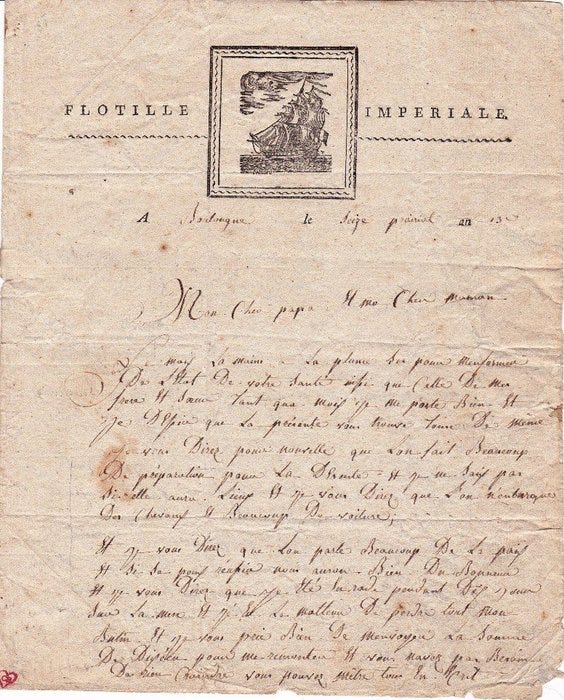 FLOTILLE IMPERIALE.
A le Seize prairial an 13
Mon Cher papa Et ma Cher maman
Je mais La maine a La plume Ses pour menformer
De Létat De votre Santé insie que Celle De mes
frere Et Sœur tant qua mois je me porte Bien Et
je DEspere que La présente vous trouve toure De même
je vous Direz pour nouvelle que Lon fait Beaucoup
De préparation pour La Dsente Et je ne Sais pas
Si elle aura Lieux Et je vous Direz que Lon nenbarque
Des Chevaux Et Beaucoup De voiture,
Et je vous Direz que Lon parle Beaucoup De La paix
Et Si Sa pous reusire nous auron Bien Du Bonneur
Et je vous Direz que je Eté En rade pendant jour
Sur La mer Et jé Eu Le malleur De perdre tout mon
Butin Et je vous prie Bien De menvoyer La Somme
De pour me remonter Et vous navez pas Besoin
De rien Craindre vous pouvez mêtre tous En